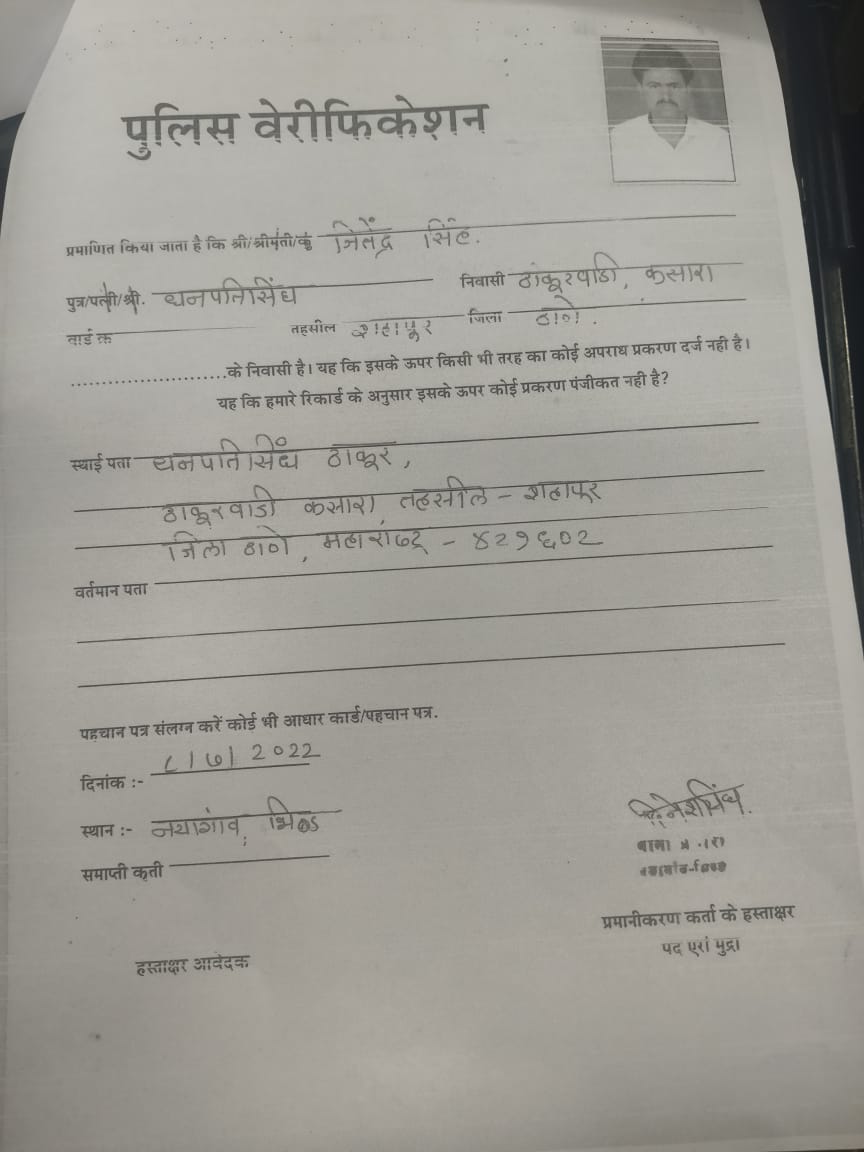 पुलिस वेरीफिकेशन
प्रमाणित किया जाता है कि श्री/श्रीमती/कु जितेंद्र सिंह.
पुत्र/पत्नी/श्री. धनपतिसिंघ निवासी ठाकूरवाडी, कसारा
वार्ड क्र तहसील शहापूर जिला ठाणे.
..........................के निवासी है। यह कि इसके ऊपर किसी भी तरह का कोई अपराध प्रकरण दर्ज नही है।
यह कि हमारे रिकार्ड के अनुसार इसके ऊपर कोई प्रकरण पंजीकत नही है?
स्थाई पता धनपतिसिंघ ठाकूर,
ठाकूरवाडी कसारा, तहसील - शहापूर
जिला ठाणे, महाराष्ट्र - ४२१६०२
वर्तमान पता
पहचान पत्र संलग्न करें कोई भी आधार कार्ड/पहचान पत्र.
दिनांक :- /७/2022
स्थान :- नयागांव, भिण्ड
समाप्ती कृती
दिनेशसिंघ
थाना
प्रमानीकरण कर्ता के हस्ताक्षर
पद एरां मुद्रा
हस्ताक्षर आवेदक